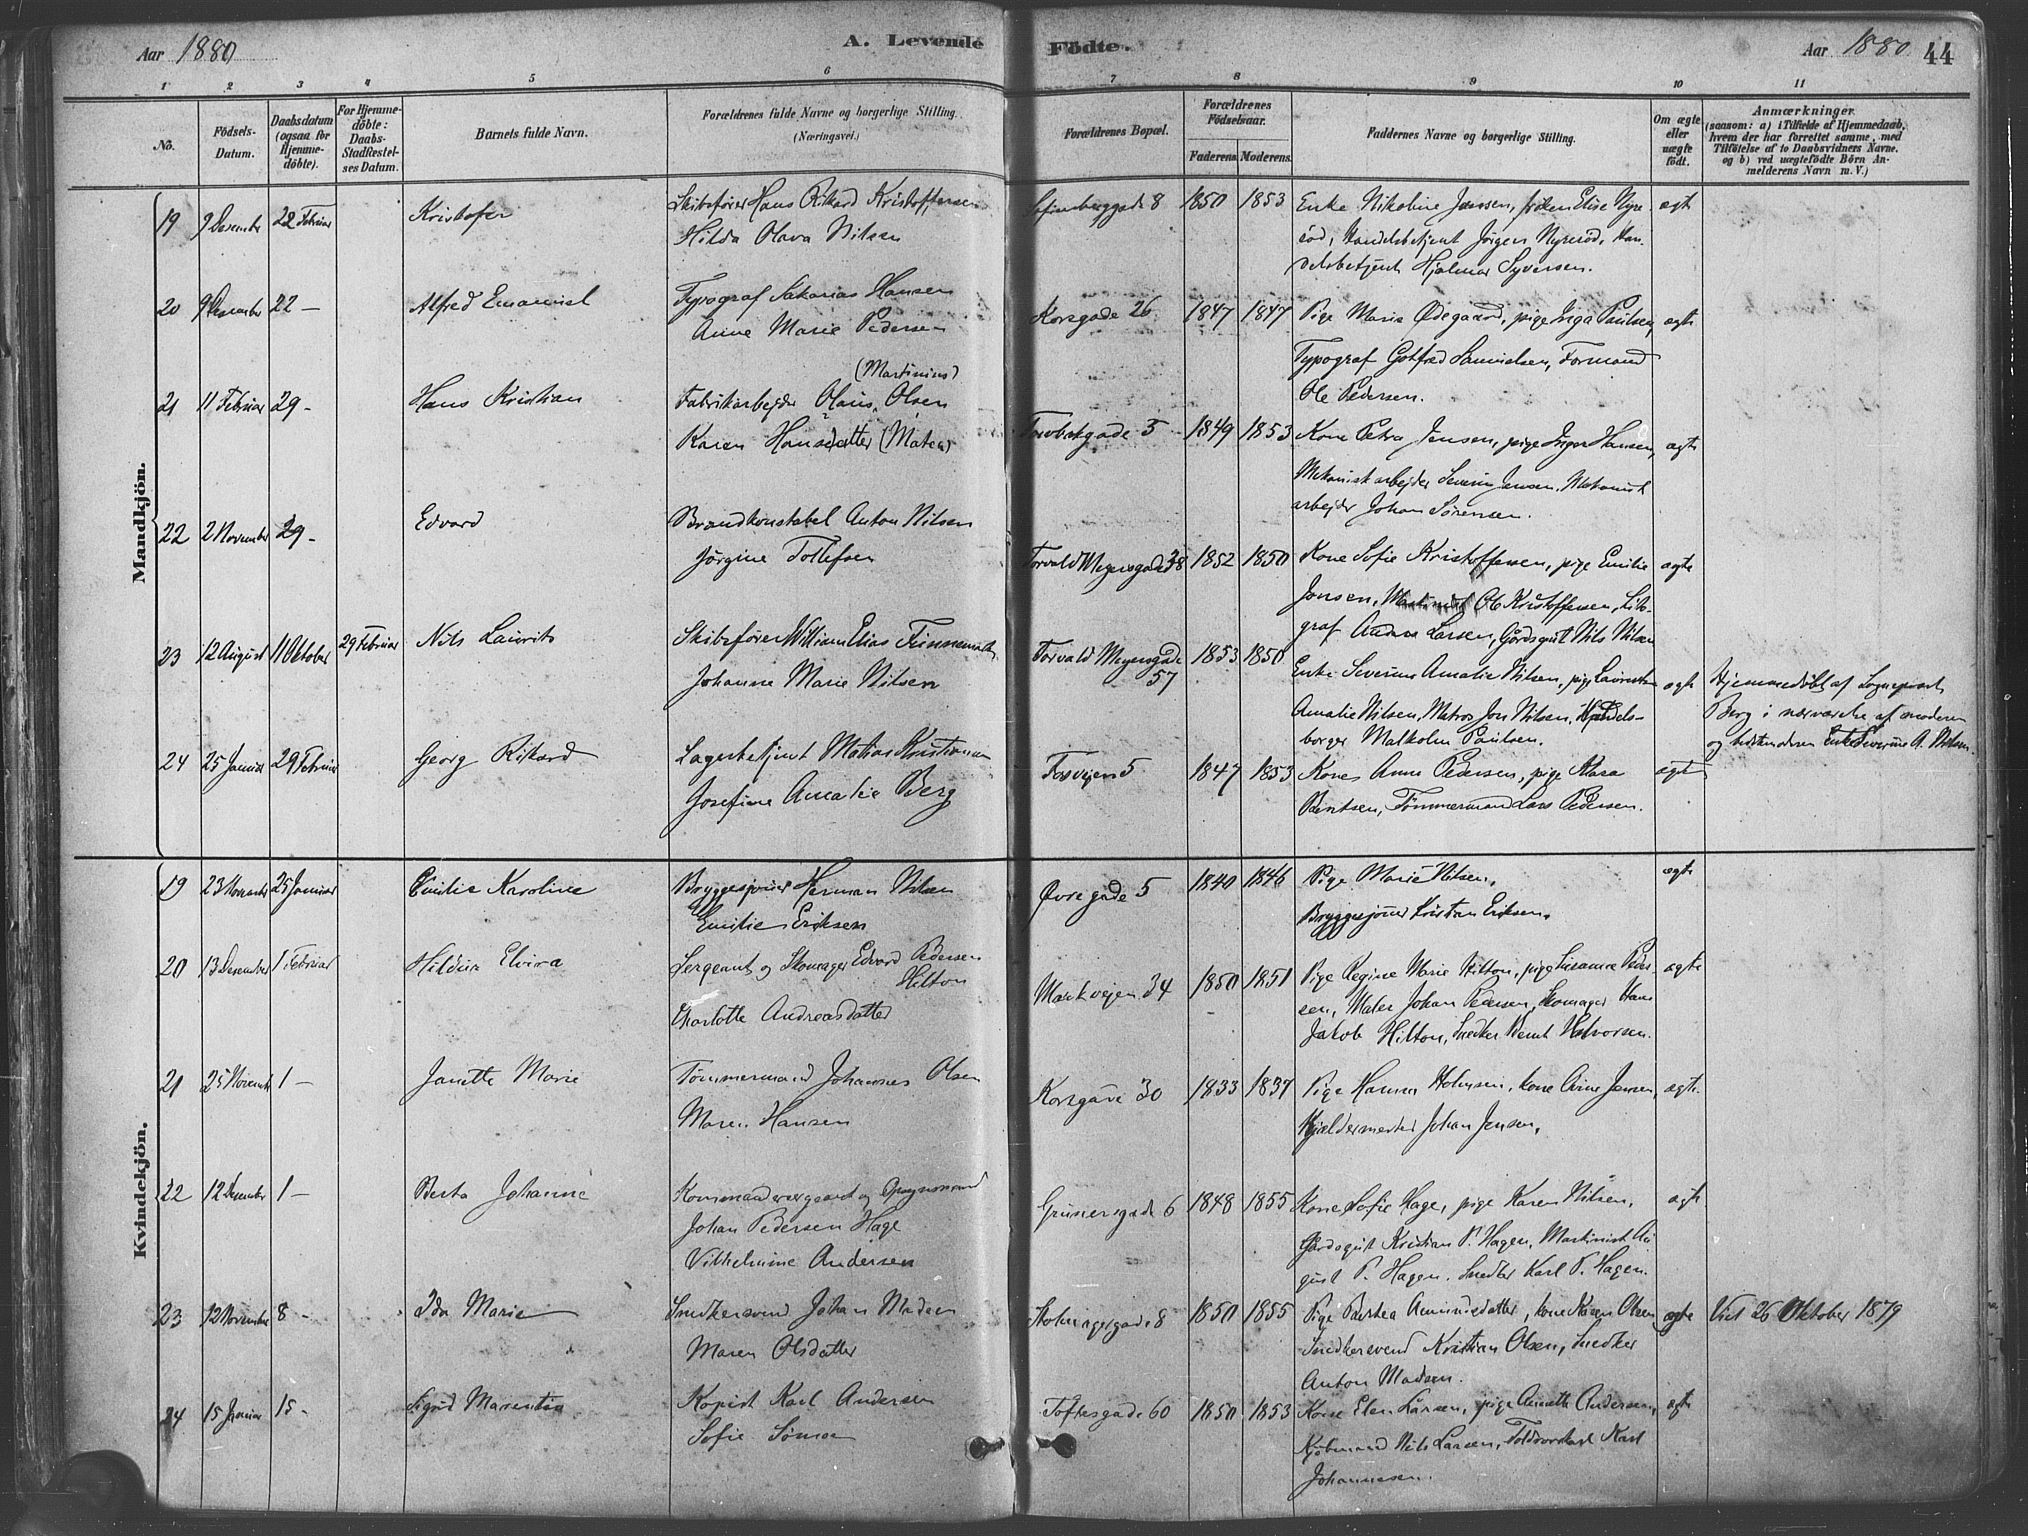 Aar 1880
A. Levende Födte.
Aar 1880
44
1 2 3 4 5 6 7 8 9 10 11
No.
Födsels-
Datum.
Daabsdatum
(ogsaa for
Hjemme-
döbte).
For Hjemme-
döbte:
Daabs-
Stadfæstel-
ses Datum.
Barnets fulde Navn.
Forældrenes fulde Navne og borgerlige Stilling.
(Næringsvei.)
Forældrenes Bopæl.
Forældrenes
Födselsaar.
Faderens. Moderens.
Faddernes Navne og borgerlige Stilling.
Om ægte
eller
uægte
födt.
Anmærkninger.
(saasom: a) i Tilfælde af Hjemmedaab,
hvem der har forrettet samme, med
Tilföielse af to Daabsvidners Navne.
og b) ved uægtefödte Börn An-
melderens Navn m. V.)
Mandkjön.
19 9 Desember 22 Februar Kristofer
Skibsfører Hans Rikard Kristoffersen
Hilda Olava Nilsen
Sofienberggade 8 1850 1853
Enke Nikoline Jensen, frøken Elise Nyre-
rød, Handelsbetjent Jørgen Nyrerød, Han-
delsbetjent Hjalmar Syversen.
ægte
20 9 Desember 22 — Alfred Emanuel
Typograf Sakarias Hansen
Anne Marie Pedersen
Korsgade 26 1847 1847
Pige Marie Ødegaard, pige Inga Paulsen,
Typograf Gotfred Samuelsen, Formand
Ole Pedersen.
ægte
21 11 Februar 29 - Hans Kristian
(Martinius)
Fabrikarbejder Olaus Olsen
Karen Hansdatter (Matea)
5 1849 1853
Kone Petra Jensen, pige Inger Hansen,
Mekaniskarbejder Severin Jensen, Mekanisk
arbejder Johan Sørensen.
ægte
22 2 November 29 - Edvard
Brandkonstabel Anton Nilsen
Jørgine Tollefsen
Torvald Meyersgade 38 1852 1850
Kone Sofie Kristoffersen, pige Emilie
Jonsen, Ole Kristoffersen, Lito-
graf Andreas Larsen, Gårdsgut Nils Nilsen
ægte
23 12 August 11 Oktober 29 Februar Nils Laurits
Skibsfører William Elias
Johanne Marie Nilsen
Torvald Meyersgade
57
1853 1850
Enke Severine Amalie Nilsen, pige
Amalie Nilsen, Matros Jon Nilsen, Handels-
borger Malkolm Paulsen.
ægte
Hjemmedøbt af Sogneprest
Berg i nærværelse af moderen
og bedstemoderen Enke Severine A. Nilsen.
24 25 Januar 29 Februar Georg Rikard
Lagerbetjent Matias Kristiansen
Josefine Amalie Berg
Fosvejen 5 1847 1853
Kone Anne Pedersen, pige Klara
Bentsen, Tømmermand Lars Pedersen.
ægte
Kvindekjön.
19 23 November 25 Januar Emilie Karoline
Bryggesjouer Herman Nilsen
Emilie Eriksen
Øvregade 5 1840 1846
Pige Marie Nilsen,
Bryggesjouer Kristian Eriksen.
ægte
20 13 Desember 1 Februar Hildur Elvira
Sergeant og Skomager Edvard Pedersen
Hilton
Charlotte Andreasdatter
Markvejen 34 1850 1851
Pige Regine Marie Hilton, pige Susanne Peder-
sen, Maler Johan Pedersen, Skomager Hans
Jakob Hilton, Snedker Bernt Halvorsen.
ægte
21 25 November 1 — Janette Marie
Tømmermand Johannes Olsen
Maren Hansen
Korsgade 30 1833 1837
Pige Hanna Holmsen, kone Anne Jensen,
Kjældermester Johan Jensen.
ægte.
22 12 Desember 1 — Berta Johanne
Kommandersergeant og Opsynsmand
Johan Pedersen Hage
Vilhelmine Andersen
Grünersgade 6 1848 1855
Kone Sofie Hage, pige Karen Nilsen,
Gårdsgut Kristian P. Hagen, Maskinist Au-
gust P. Hagen, Snedker Karl P. Hagen.
ægte
23 12 November 8 - Ida Marie
Snedkersvend Johan Madsen
Maren Olsdatter
8 1850 1855
Pige Berthea Amundsdatter, kone Karen Olsen
Snedkersvend Kristian Olsen, Snedker
Anton Madsen.
ægte
Viet 26 Oktober 1879
24 15 Januar 15 - Sigrid Marentia
Kopist Karl Andersen
Sofie
Toftesgade 60 1850 1853
Kone Elen Larsen, pige Anette Andersen,
Kjøbmand Nils Larsen, Karl
Johannesen.
ægte